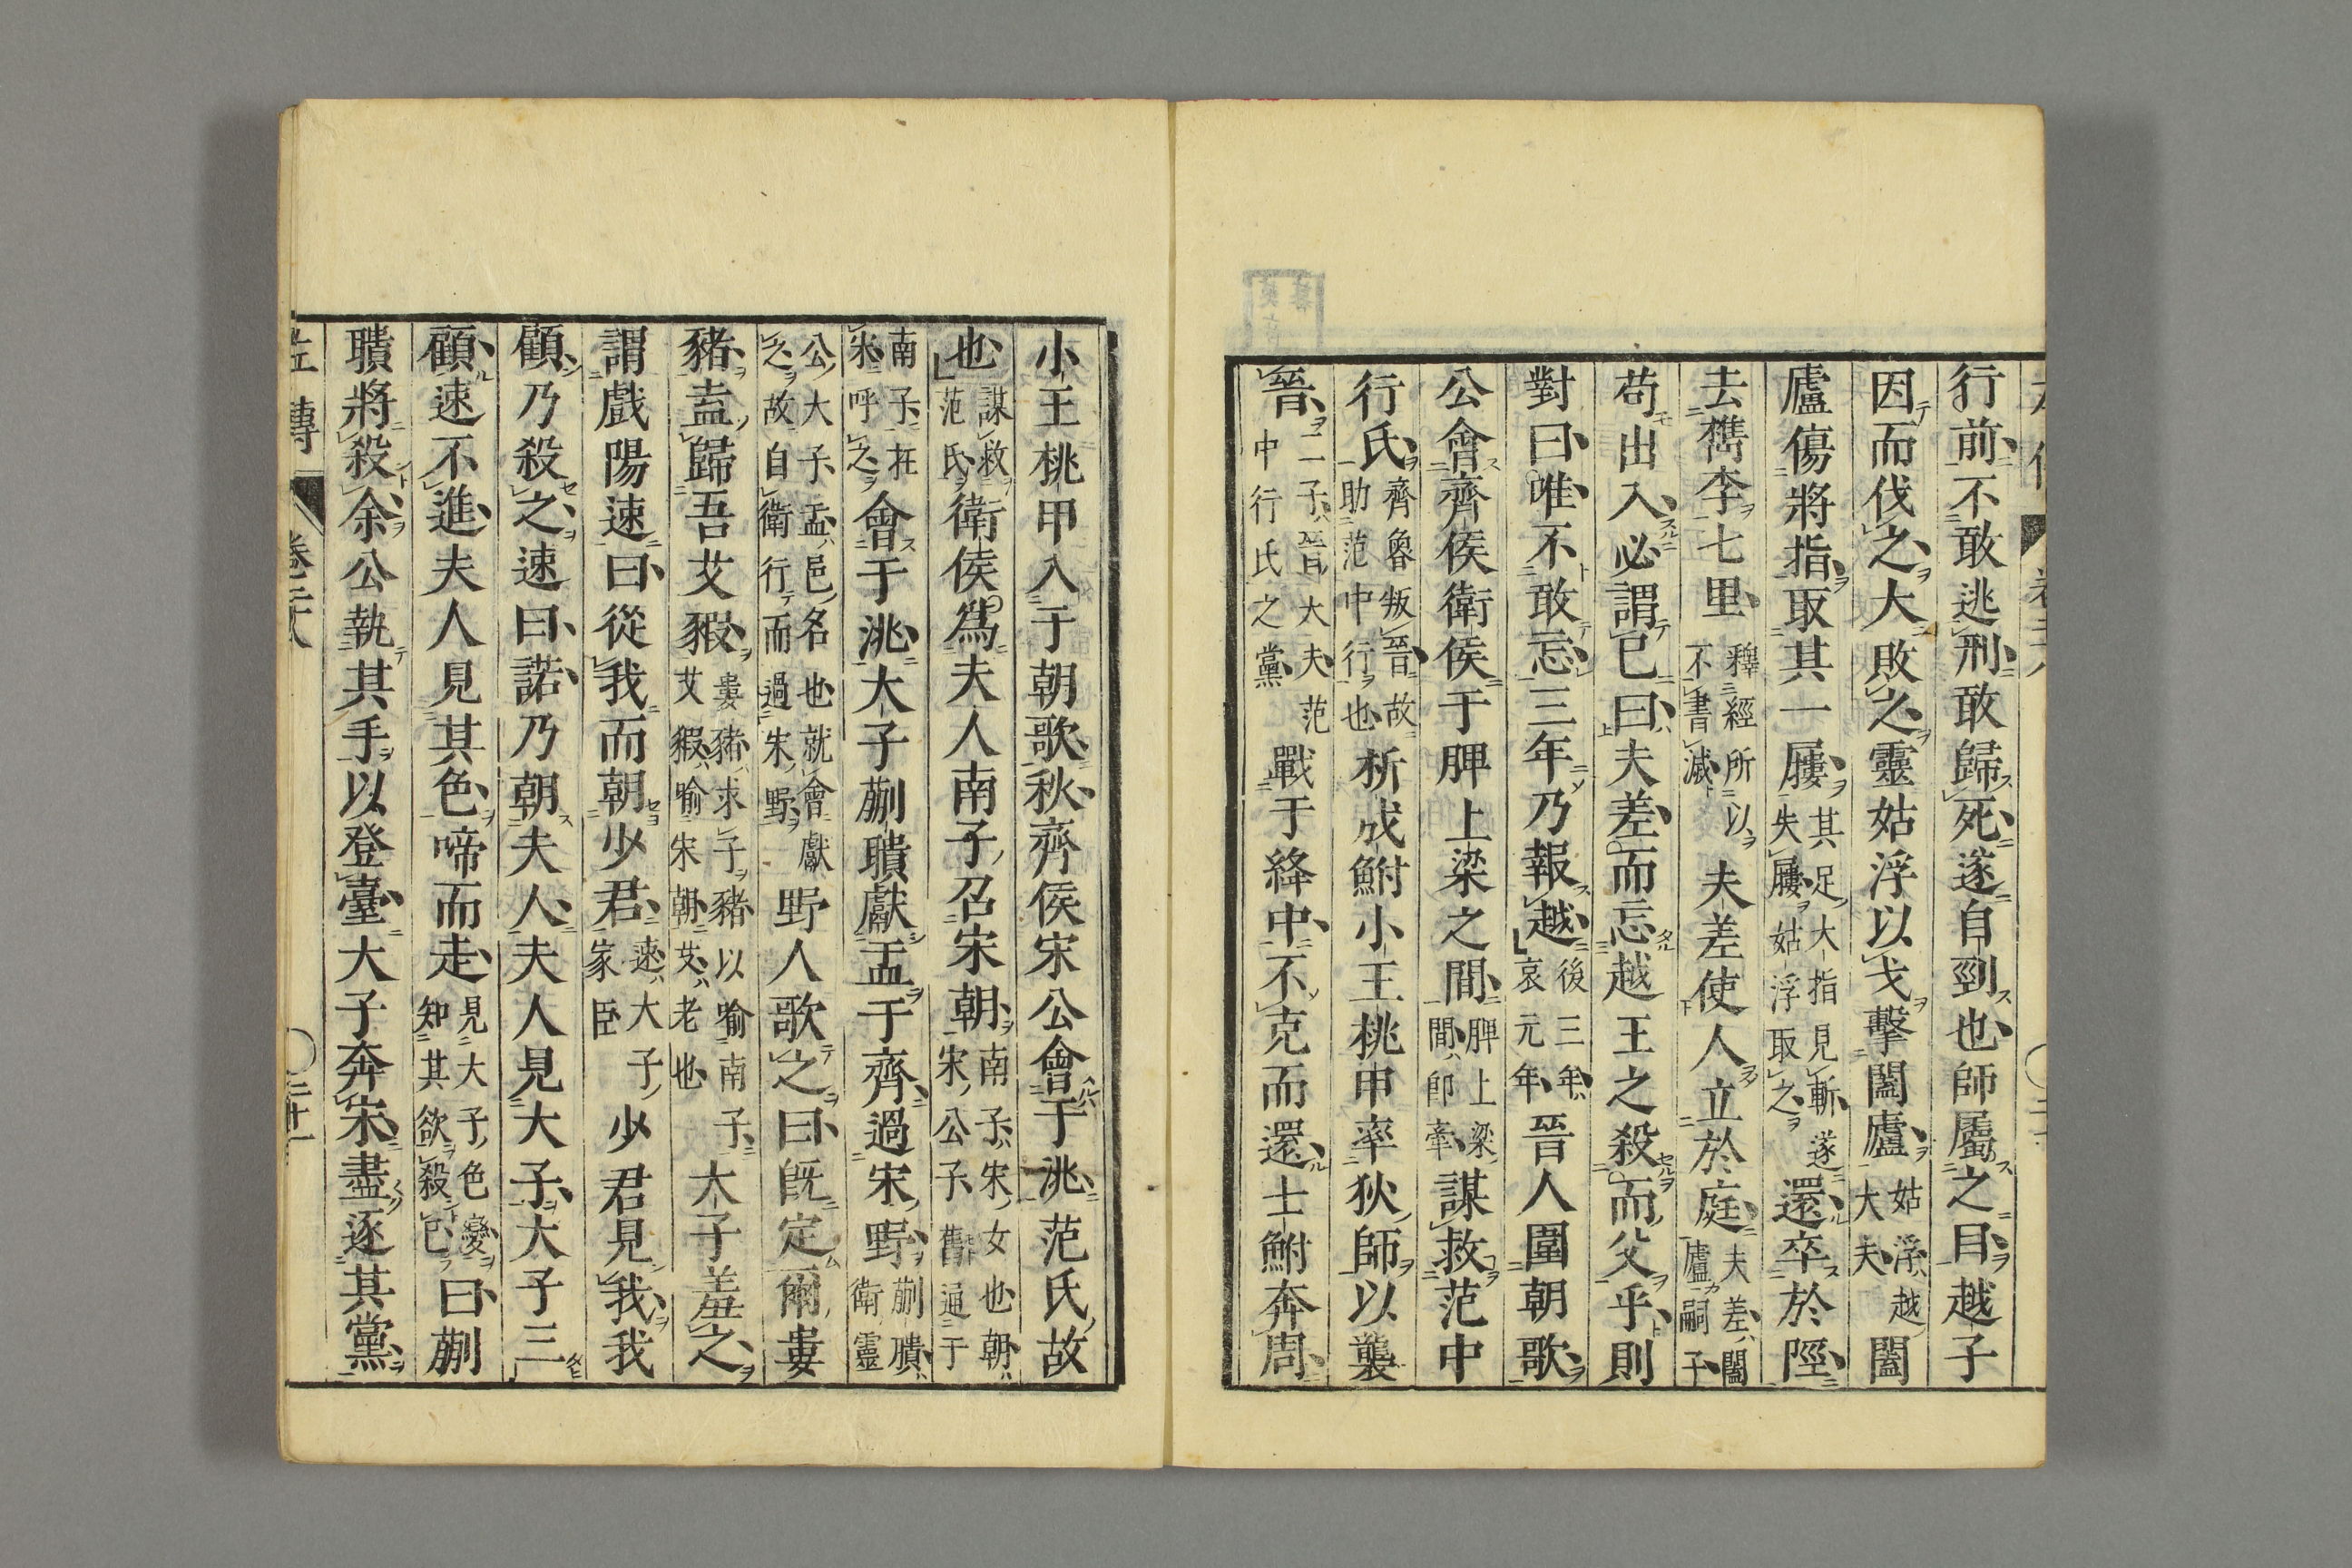 行前不敢逃刑敢歸死遂自剄也師屬之目越子
因而伐之大敗之靈姑浮以戈擊闔廬姑浮越大夫闔
廬傷將指取其一屨其足大指見斬遂失屨姑浮取之還卒於陘
去檇李七里釋經所以不書滅夫差使人立於庭夫差闔廬嗣子
苟出入必謂已曰夫差而忘越王之殺而父乎則
對曰唯不敢忘三年乃報越後三年哀元年晉人圍朝歌
公會齊侯衛侯于脾上梁之間脾上梁間卽牽謀救范中
行氏齊魯叛晉故助范中行也析成鮒小王桃甲率狄師以襲
晉二子晉大夫范中行氏之黨戰于絳中不克而還士鮒奔周
小王桃甲入于朝歌秋齊侯宋公會于洮范氏故
也謀救范氏衛侯爲夫人南子召宋朝南子宋女也朝宋公子舊通于
南子在宋呼之會于洮大子蒯聵獻盂于齊過宋野蒯聵衛靈
公大子盂邑名也就會獻之故自衛行而過宋野野人歌之曰旣定爾婁
豬盍歸吾艾豭婁豬求子豬以喻南子艾豭喻宋朝艾老也大子羞之
謂戲陽速曰從我而朝少君速大子家臣少君見我我
顧乃殺之速曰諾乃朝夫人夫人見大子大子三
顧速不進夫人見其色啼而走見大子色變知其欲殺已曰蒯
聵將殺余公執其手以登臺大子奔宋盡逐其黨
左傳 卷二十八 ○二十一